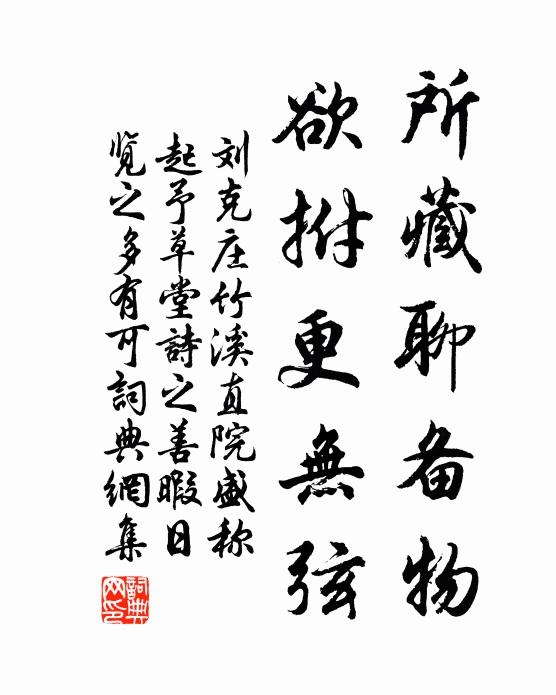 所藏聊备物
欲拊更無弦
刘克庄竹溪直院盛称
起予草堂詩之善暇日
覽之多有可詞典網集
詞典
网印